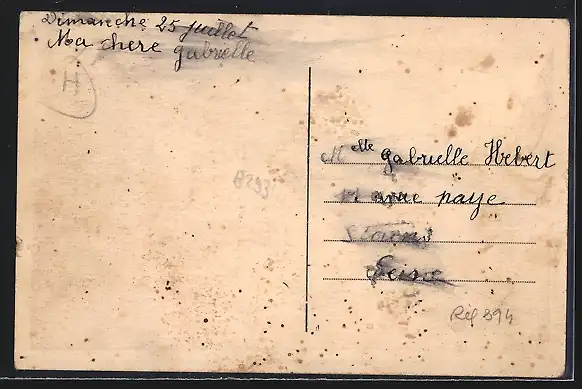 Dimanche 25 juillet
Ma chere gabrielle
H
8293
Mlle gabrielle Hebert
rue paye
Seine
Réf 894